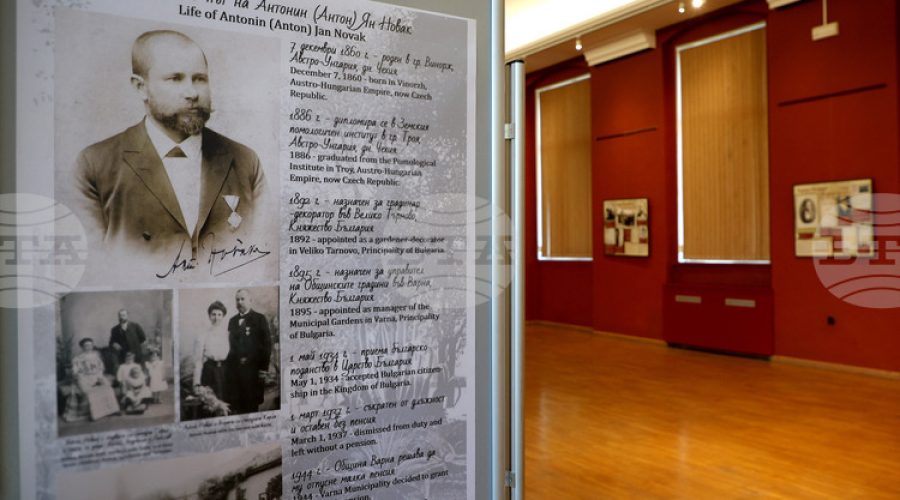 на Антонин (Антон) Ян Новак
Life of Antonin (Anton) Jan Novak
7 декември 1860 г. - роден в гр. Винорж,
Австро-Унгария, дн. Чехия
December 7, 1860 - born in Vinorzh,
Austro-Hungarian Empire, now Czech
Republic.
1886 г. - дипломира се в Земския
помологичен институт в гр. Троя,
Австро-Унгария, дн. Чехия
1886 - graduated from the Pomological
Institute in Troy, Austro-Hungarian
Empire, now Czech Republic.
1892 г. - назначен за градинар
-декоратор във Велико Търново,
Княжество България
1892 - appointed as a gardener-decorator
in Veliko Tarnovo, Principality of Bulgaria.
1895 г. - назначен за управител
на Общинските градини във Варна,
Княжество България
1895 - appointed as manager of the
Municipal Gardens in Varna, Principality
of Bulgaria.
1 май 1934 г. - приема българско
поданство в Царство България
May 1, 1934 - accepted Bulgarian citizen-
ship in the Kingdom of Bulgaria.
1 март 1937 г. - съкратен от длъжност
и оставен без пенсия
March 1, 1937 - dismissed from duty and
left without a pension.
1944 г. - Община Варна решава да
му отпусне малка пенсия
1944 - Varna Municipality decided to grant